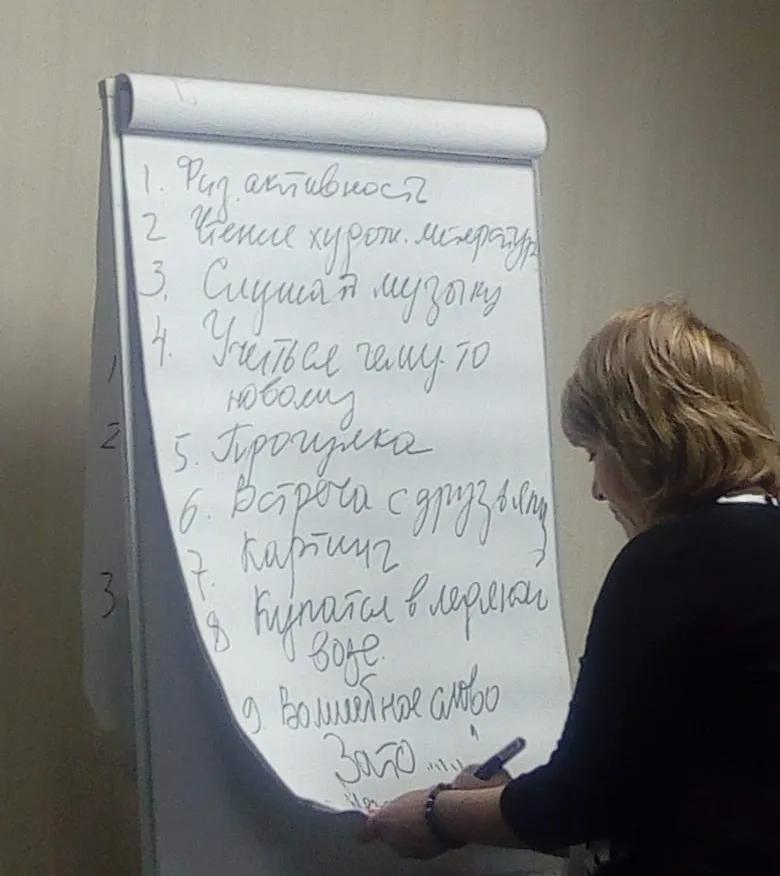 1. Физ. активность
2 Чтение худож. литератур
3. Слушат музыку
4. Учиться чему-то
новому
5. Прогулка
6. Встреча с друзьями
7. Картинг
8 Купатся в ледяной
воде.
9. Волшебное слово
Зато.....
1
2
3